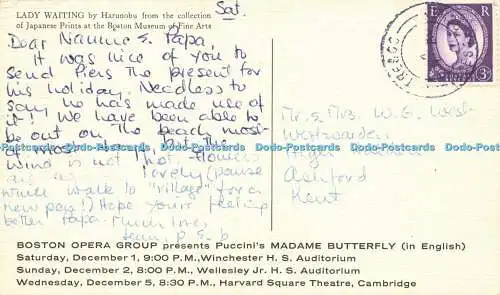 LADY WAITING by Harunobu from the collection
of Japanese Prints at the Boston Museum of Fine Arts
Sat.
Dear Nannie & Papa,
It was nice of you to
send Piers the present for
his holiday. Needless to
say he has made use of
it! We have been able to
be out on the beach most
wind is not hot. flowers
lovely (pause
while walk to "village" for a
new pen!) Hope you're feeling
better Papa. Much love,
E R
3D
Mr. & Mrs. W. G. West-
Ashford
Kent
Donate-Postcards Donate-Postcards Donate-Postcards
BOSTON OPERA GROUP presents Puccini's MADAME BUTTERFLY (in English)
Saturday, December 1, 9:00 P.M., Winchester H. S. Auditorium
Sunday, December 2, 8:00 P.M., Wellesley Jr. H. S. Auditorium
Wednesday, December 5, 8:30 P.M., Harvard Square Theatre, Cambridge